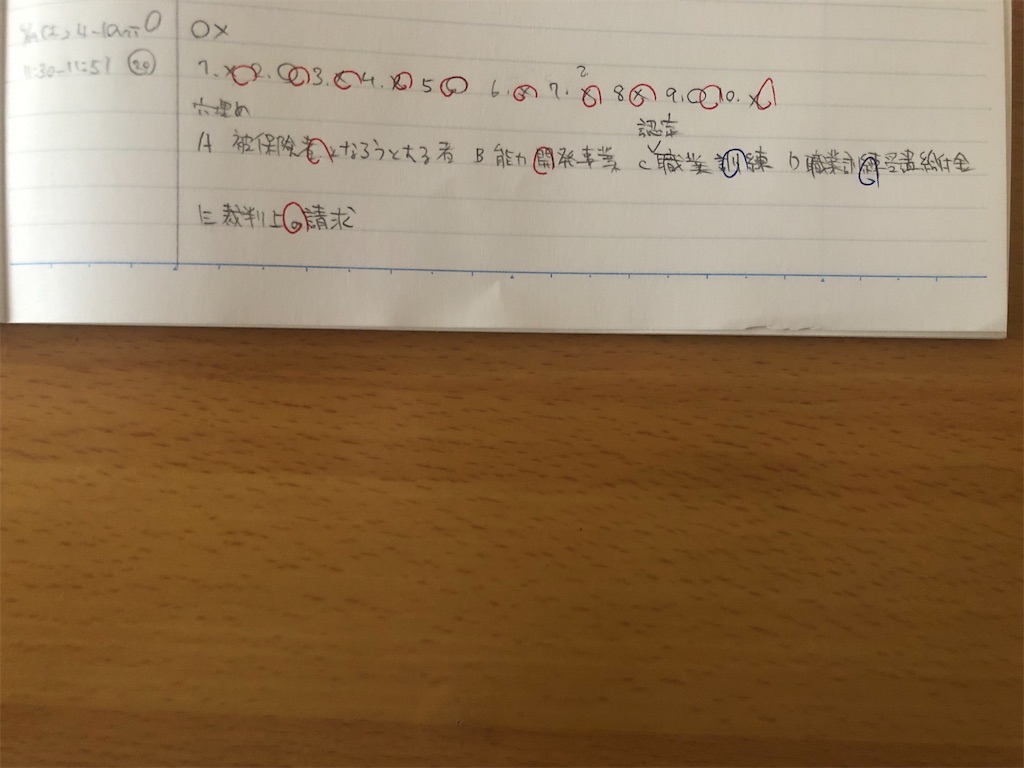 ○×
11:30-11:51 20
1. × 2. ○ 3. × 4. × 5 ○ 6. × 7. × 8 × 9. ○ 10. ×
2
穴埋め
認定
A 被保険者となろうとする者 B 能力開発事業 C 職業訓練 D 職業訓練受講給付金
E 裁判上の請求